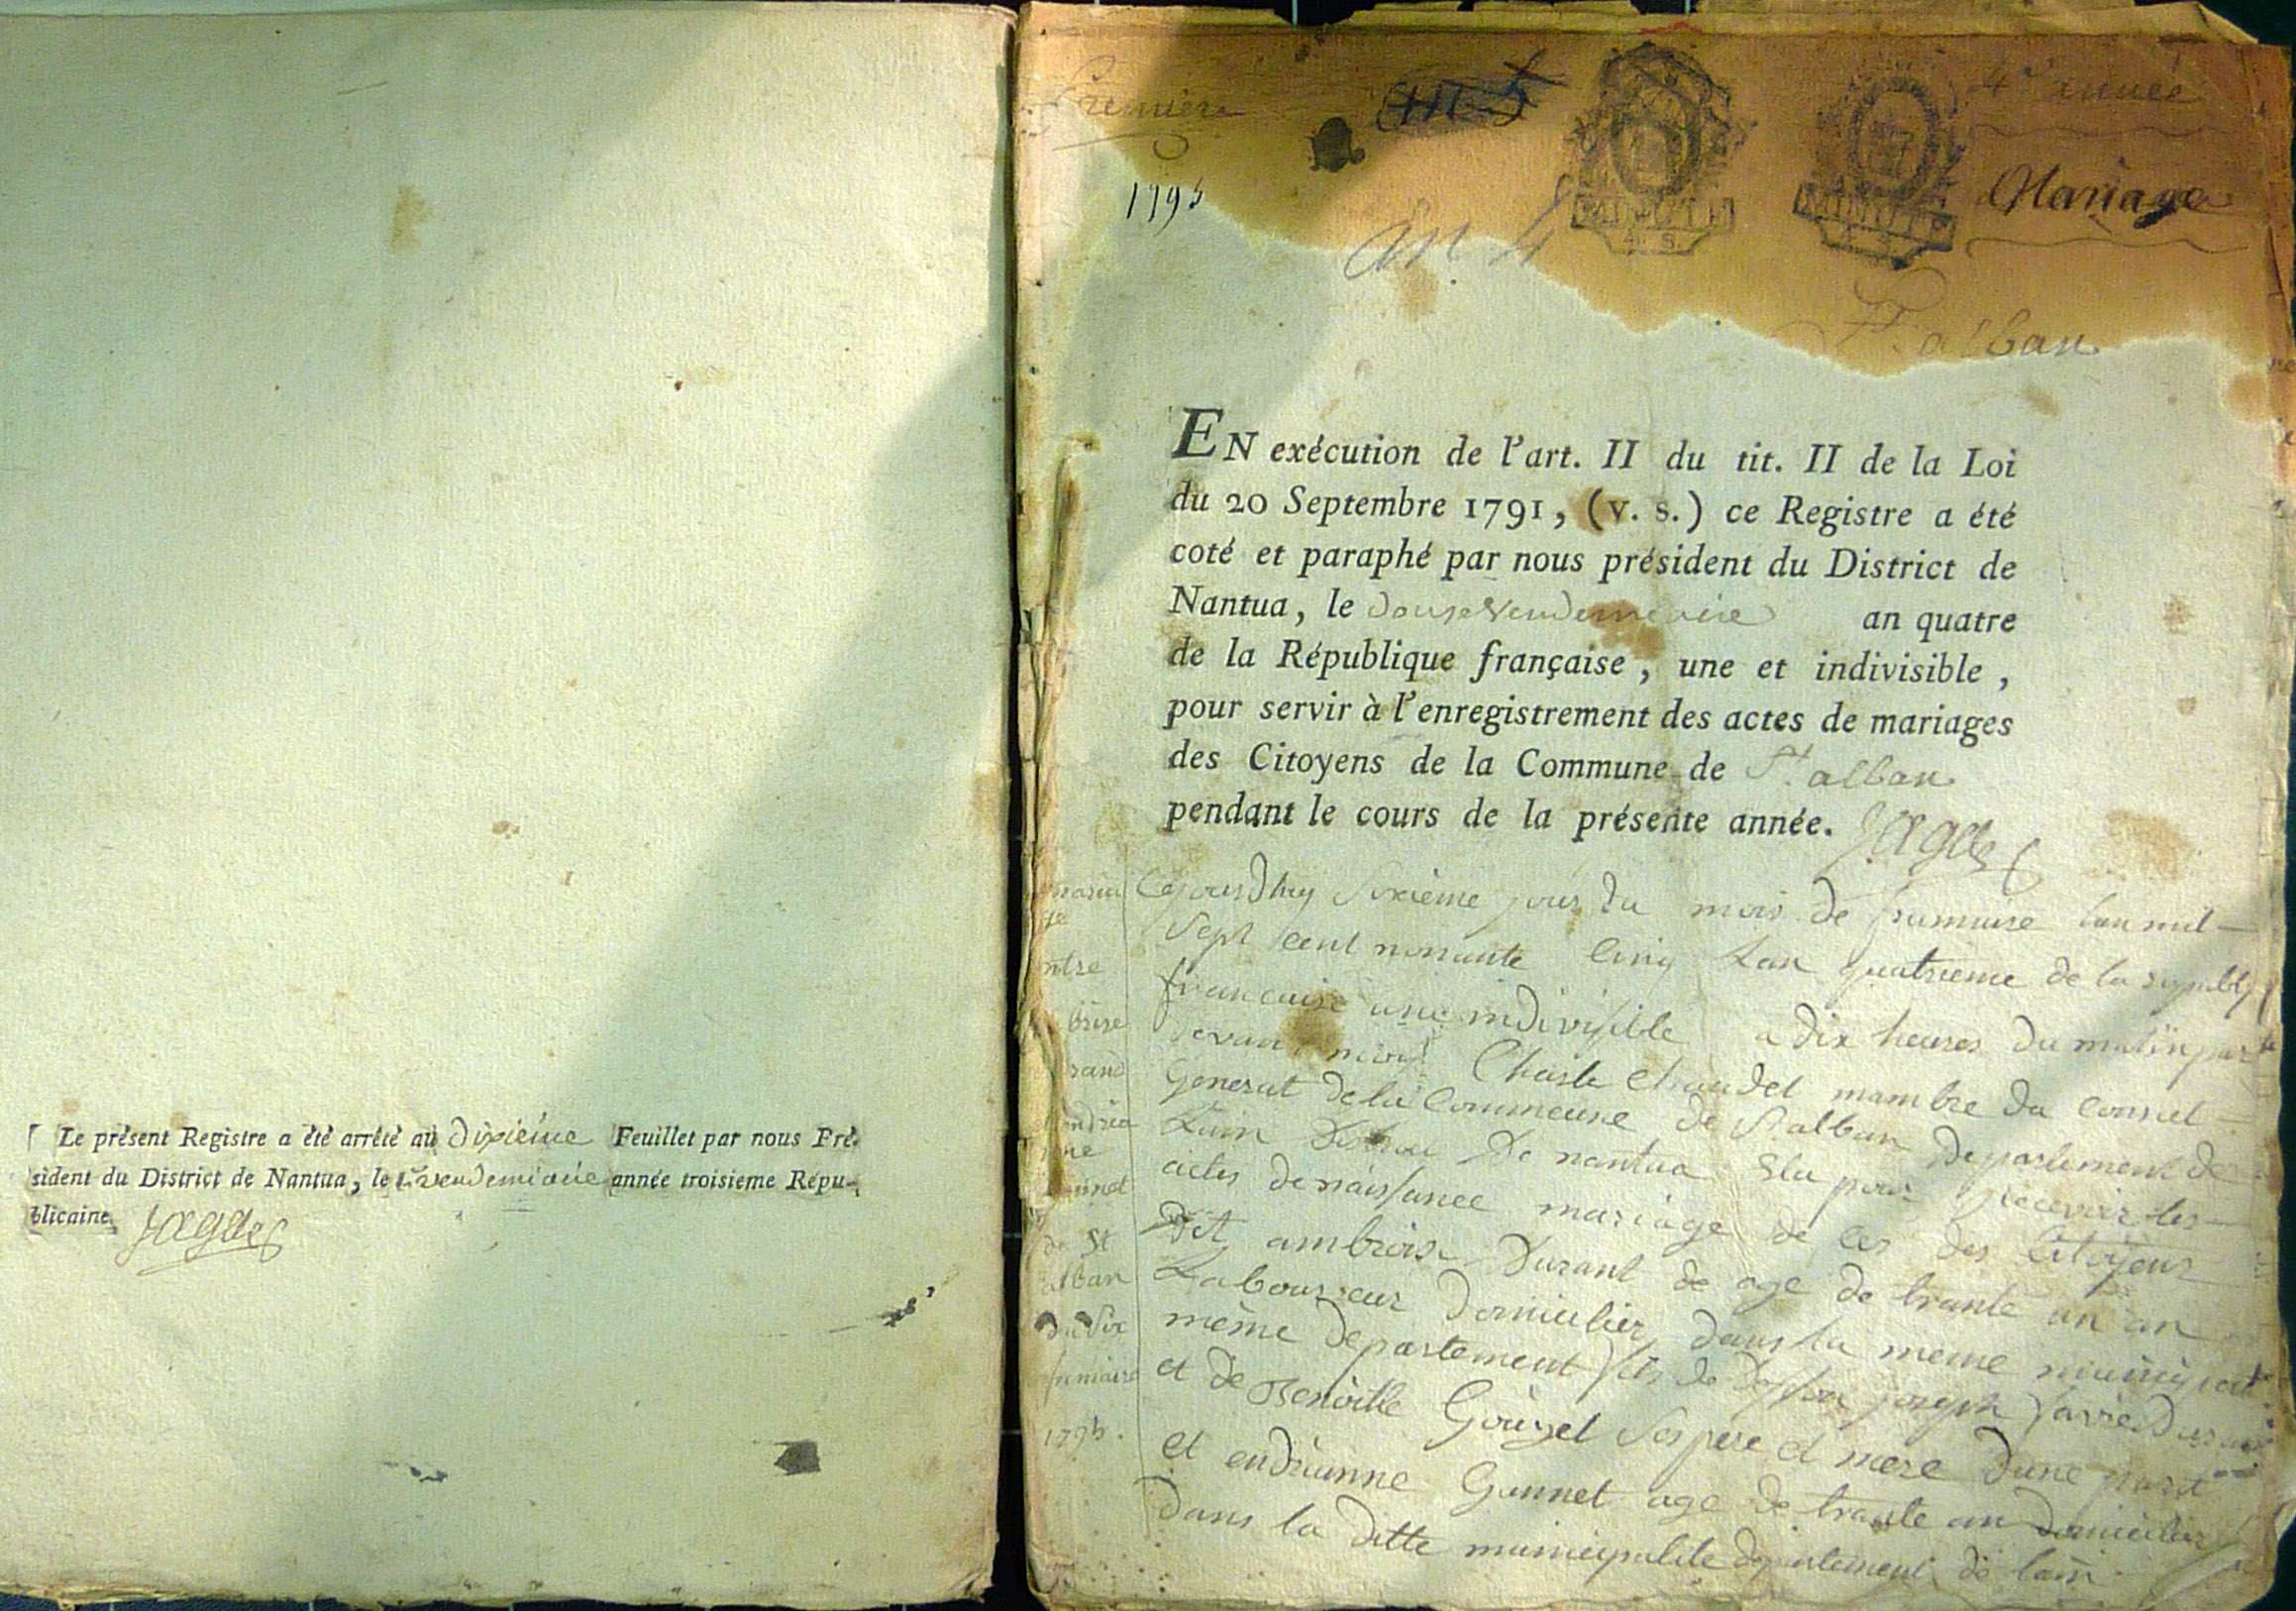 Le présent Registre a été arrêté au dixième Feuillet par nous Pré-
sident du District de Nantua, le vendemiaire année troisieme Répu-
blicaine.
Première
an 5
4e année
1795
Mariage
an 4
St. alban
EN exécution de l'art. II du tit. II de la Loi
du 20 Septembre 1791, (v. s.) ce Registre a été
coté et paraphé par nous président du District de
Nantua, le douse Vendemiaire an quatre
de la République française, une et indivisible,
pour servir à l'enregistrement des actes de mariages
des Citoyens de la Commune de St. alban
pendant le cours de la présente année.
maria
ge
ntre
brise
rand
ndria
ne
unet
de St
alban
du six
frimaire
1795.
Cejourdhuy Sixième jour du mois de frumaire lan mil
Sept cent nonante Cinq Lan quatrieme de la republq
francaise une indivisible a dix heures du matin par
devant moy Charle Chaudet mambre du Conseil
General de la Commeune de St alban Departement de
Lain District de nantua Elu pour recevoir les
actes de naissance mariage de ces des Citoyens
Dit ambrois Durant de age de trante un an
Labourreur domicilier dans la meme municipalit
même departement fils de joseph favie Durant
et de Benoitte Gouget Ses pere et mere Dune part
et endrianne Gunnet age de trante an domicilier
Dans la ditte municipalite departement de lain